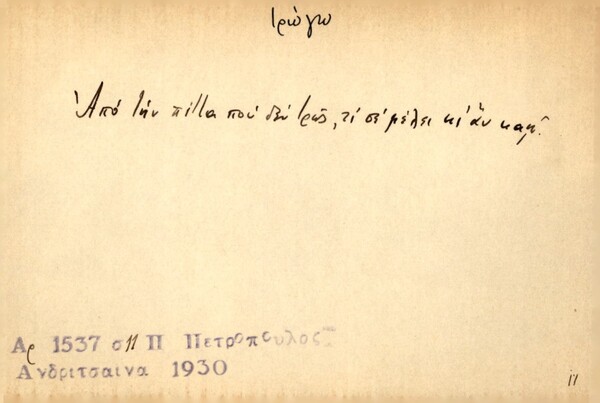 τρώγω
Ἀπό τήν πίττα πού δέν τρῶς, τί σέ μέλει κι' ἄν καῇ.
Αρ 1537 σ 11 Π Πετροπουλος
Ανδριτσαινα 1930